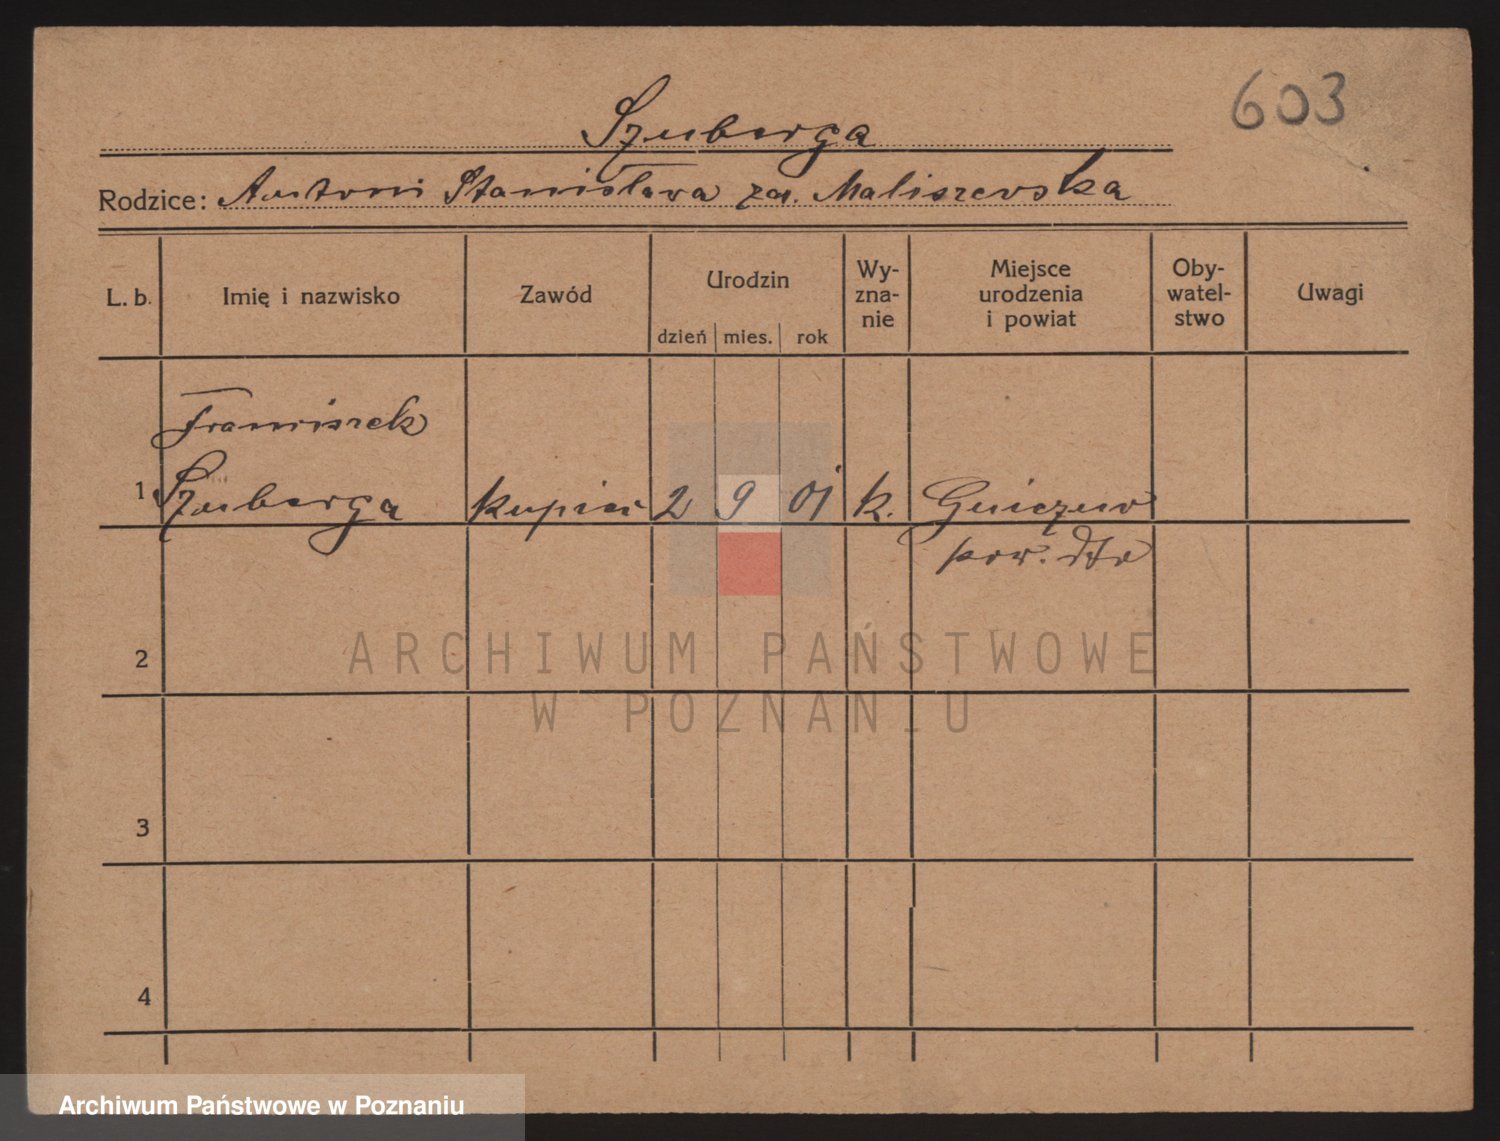 603
Szuberga
Rodzice: Antoni Stanisława za. Maliszewska
L. b. Imię i nazwisko Zawód Urodzin dzień mies. rok Wy-zna-nie Miejsce urodzenia i powiat Oby-watel-stwo Uwagi
Franciszek
1 Szuberga kupiec 2 9 01 k. Gniezno
pow. dto
2
ARCHIWUM PAŃSTWOWE
W POZNANIU
3
4
Archiwum Państwowe w Poznaniu